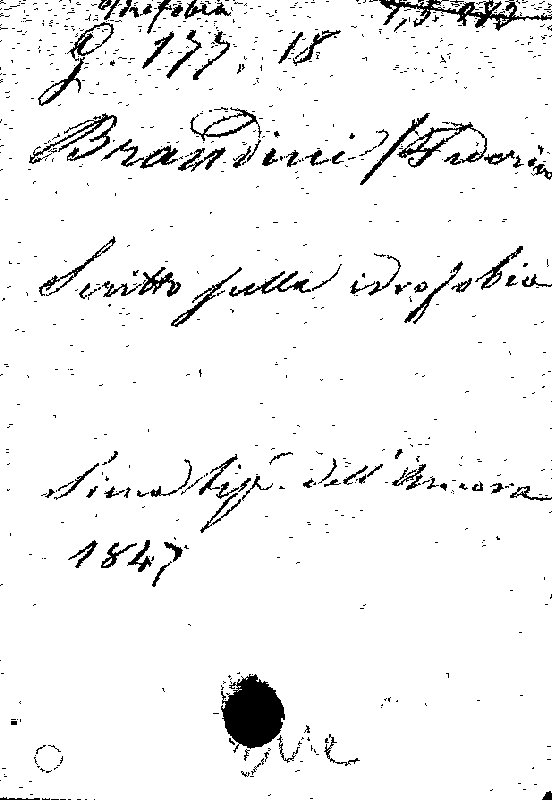 Idrofobia
G. 177. 18
Brandini (Federico
Scritto sulla idrofobia
Siena Tip. dell'Ancora
1847